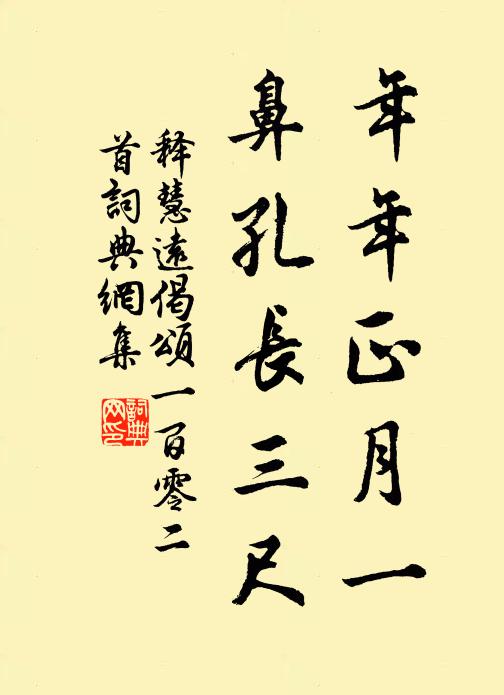 年年正月一
鼻孔長三尺
释慧遠偈頌一百零二
首詞典網集
詞典
网印